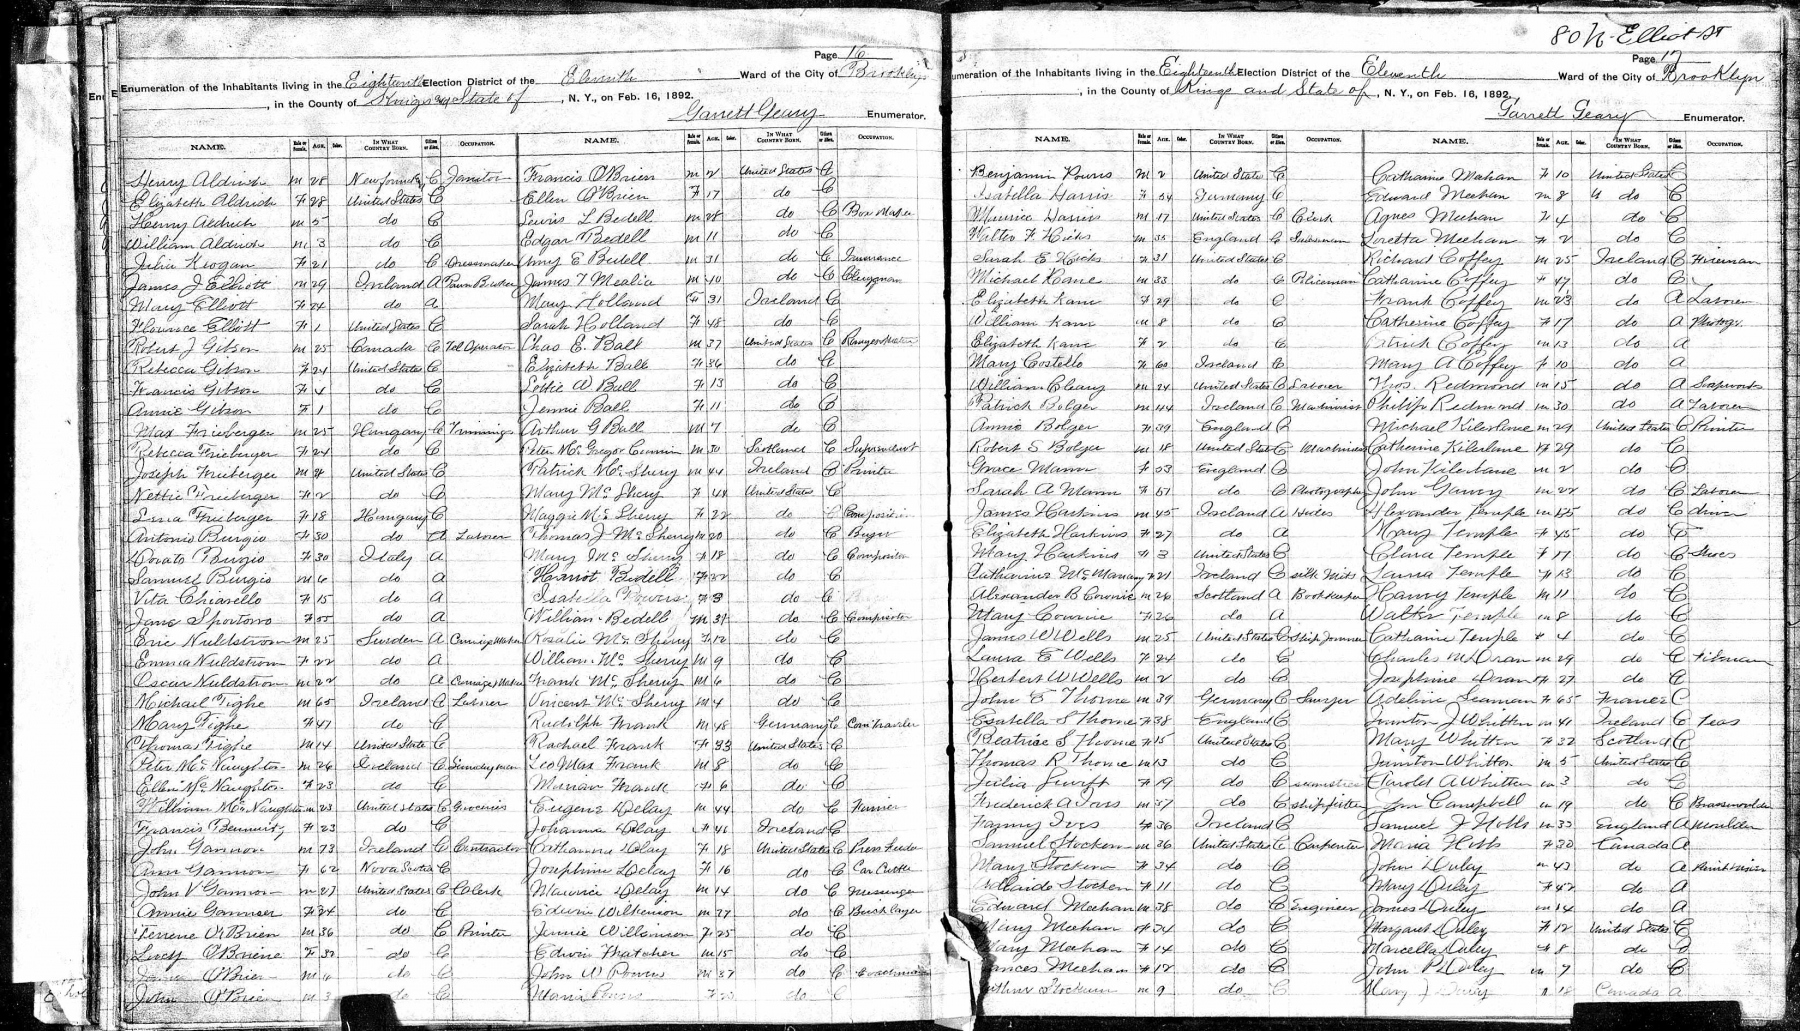 80 N. Elliot St
Page 16
Enumeration of the Inhabitants living in the Eighteenth Election District of the Eleventh Ward of the City of Brooklyn
, in the County of Kings and State of , N. Y., on Feb. 16, 1892.
Garrett Geary Enumerator.
NAME. Male or Female. AGE. Color. IN WHAT COUNTRY BORN. Citizen or Alien. OCCUPATION. NAME. Male or Female. AGE. Color. IN WHAT COUNTRY BORN. Citizen or Alien. OCCUPATION.
Henry Aldrich m 28 C Janitor
Elizabeth Aldrich F 28 United States C
Henry Aldrich m 5 do C
William Aldrich m 3 do C
Julia Keogan F 21 do C Dressmaker
James J Elliott m 29 Ireland A
Mary Elliott F 24 do A
Florence Elliott F 1 United States C
Robert J Gibson m 25 Canada C Tel Operator
Rebecca Gibson F 24 United States C
Francis Gibson F 4 do C
Annie Gibson F 1 do C
Max Frieberger m 25 Hungary C Trimmings
Rebecca Frieberger F 24 do C
Joseph Frieberger m 4 United States C
Nettie Frieberger F 2 do C
Frieberger F 18 Hungary C
Antonio Burgio 30 do A Laborer
Burgio F 30 Italy A
Samuel Burgio m 6 do A
Vita Chiarello F 15 do A
Jane F 55 do A
Eric Nuldstrom m 25 Sweden A
Emma Nuldstrom F 22 do A
Oscar Nuldstrom m 22 do A
Michael Tighe m 65 Ireland C Laborer
Mary Tighe F 47 do C
Thomas Tighe m 14 United States C
Peter McNaughton m 26 Ireland C
Ellen McNaughton F 23 do C
William McNaughton m 23 United States C Groceries
Francis F 23 do C
John Gannon m 73 Ireland C Contractor
Ann Gannon F 62 Nova Scotia C
John V Gannon m 27 United States C Clerk
Annie Gannon F 24 do C
O'Brien m 36 do C Printer
Lucy O'Briene F 32 do C
O'Brien m do C
John O'Brien m do C
Francis O'Brien m 2 United States C
Ellen O'Brien F 17 do C
Lewis L Bedell m 28 do C Box Maker
Edgar Bedell m 11 do C
Amy E Bedell m 31 do C Insurance
James T Mealia m 40 do C Clergyman
Mary Holland F 31 Ireland C
Sarah Holland F 48 do C
Chas E. Ball m 37 United States C
Elizabeth Ball F 36 do C
Lottie A Ball F 13 do C
Jennie Ball F 11 do C
Arthur G Ball m 7 do C
Peter McGregor m 30 Scotland C
Patrick McSherry m 44 Ireland C Printer
Mary McSherry F 44 United States C
Maggie McSherry F 22 do C Compositor
Thomas J McSherry m 20 do C
Mary McSherry F 18 do C Compositor
Harriot Bedell F 22 do C
Isabella Powers F 3 do C
William Bedell m 31 do C Compositor
Rosalie McSherry F 12 do C
William McSherry m 9 do C
Frank McSherry m 6 do C
Vincent McSherry m 4 do C
Rudolph Frank m 48 Germany C Com Traveler
Rachael Frank F 33 United States C
Leo Max Frank m 8 do C
Marian Frank F 6 do C
Eugene Delay m 44 do C
Johanna Delay F 46 Ireland C
Catharine Delay F 18 United States C Press Feeder
Josephine Delay F 16 do C
Maurice Delay m 14 do C Messenger
Edwin Wilkenson m 27 do C Brick layer
Jennie Williamson F 25 do C
Edwin Thatcher m 15 do C
John W Powers m 37 do C Coachman
Maria Powers F do C
Page 17
Enumeration of the Inhabitants living in the Eighteenth Election District of the Eleventh Ward of the City of Brooklyn
, in the County of Kings and State of , N. Y., on Feb. 16, 1892.
Garrett Geary Enumerator.
NAME. Male or Female. AGE. Color. IN WHAT COUNTRY BORN. Citizen or Alien. OCCUPATION. NAME. Male or Female. AGE. Color. IN WHAT COUNTRY BORN. Citizen or Alien. OCCUPATION.
Benjamin Powers m 2 United States C
Isabella Harris F 54 Germany C
Maurice Harris m 17 United States C Clerk
Walter F Hicks m 35 England C
Sarah E Hicks F 31 United States C
Michael Kane m 33 do C Policeman
Elizabeth Kane F 29 do C
William Kane m 8 do C
Elizabeth Kane F 2 do C
Mary Costello F 60 Ireland C
William Cleary m 24 United States C Laborer
Patrick Bolger m 44 Ireland C Machinist
Annie Bolger F 39 England C
Robert S Bolger m 18 United States C Machinist
Grace Mann F 53 England C
Sarah A Mann F 51 do C Photographs
James Harkins m 45 Ireland A Hides
Elizabeth Harkins F 27 do A
Mary Harkins F 3 United States C
Catharine McManany F 21 Ireland C
Alexander B Cownie m 26 Scotland A Bookkeeper
Mary Cownie F 26 do A
James W Wells m 25 United States C Ship Joiner
Laura E Wells F 24 do C
Herbert W Wells m 2 do C
John E Thorne m 39 Germany C
Esatella S Thorne F 38 England C
Beatrice S Thorne F 15 United States C
Thomas R Thorne m 13 do C
Julia Swift F 19 do C
Frederick A Ives m 37 do C shipfitter
Fanny Ives F 36 Ireland C
Samuel Stockem m 36 United States C Carpenter
Mary Stockem F 34 do C
Stockem F 11 do C
Edward Meehan m 38 do C Engineer
Mary Meehan F 34 do C
Mary Meehan F 14 do C
Frances Meehan F 12 do C
Arthur Stockem m 9 do C
Catharine Mahan F 10 United States C
Edward Meehan m 8 do C
Agnes Meehan F 4 do C
Loretta Meehan F 2 do C
Richard Coffey m 25 Ireland C Fireman
Catharine Coffey F 47 do C
Frank Coffey m 23 do A Laborer
Catherine Coffey F 17 do A
Patrick Coffey m 13 do A
Mary A Coffey F 10 do A
Thos. Redmond m 15 do A Soapworks
Philip Redmond m 30 do A Laborer
Michael Kilerlane m 29 United States C Printer
Catherine Kilerlane F 29 do C
John Kilerlane m 2 do C
John Garvey m 22 do C Laborer
Alexander Temple m do C driver
Mary Temple F 45 do C
Clara Temple F 17 do C Shoes
Laura Temple F 13 do C
Harry Temple m 11 do C
Walter Temple m 8 do C
Catharine Temple F 4 do C
Charles McDran m 29 do C
Josephine Dran F 27 do C
Adeline Seaman F 65 France C
J Whitten m 41 Ireland C Teas
Mary Whitten F 32 Scotland C
Whitten m 5 United States C
Harold A Whitten m 3 do C
Campbell m 19 do C
Samuel J Hobbs m 33 England A Moulder
Maria Hobbs F 30 Canada A
John Duley m 43 do A
Mary Duley F 42 do A
James Duley m 14 do A
Margaret Duley F 12 United States C
Marcella Duley F 8 do C
John P Duley m 7 do C
Mary J Duley F 18 Canada A